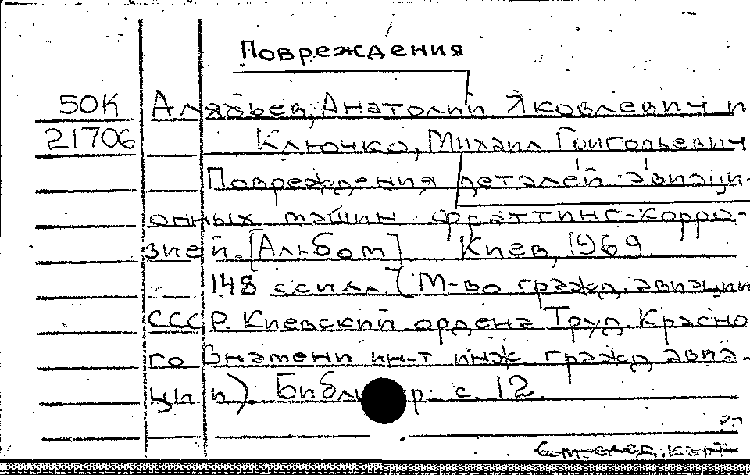 Повреждения
50К Алябьев, Анатолий Яковлевич и
21706 Ключко, Михаил Григорьевич
Повреждения деталей авиаци-
онных машин фреттинг-корро-
зией. [Альбом]. Киев, 1969.
148 с с илл. (М-во гражд. авиации
СССР. Киевский ордена Труд. Красно
го Знамени ин-т инж. гражд. авиа-
ции). с. 12.
См. след. карт